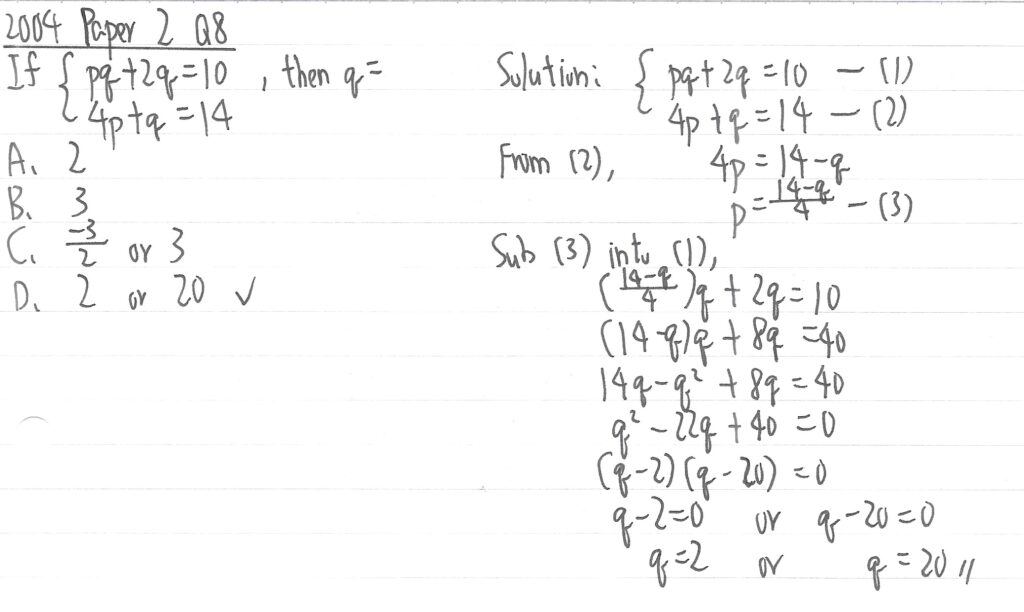 2004 Paper 2 Q8
If { pq+2q=10 , then q=
4p+q=14
A. 2
B. 3
C. -3/2 or 3
D. 2 or 20 ✓
Solution: { pq+2q=10 — (1)
4p+q=14 — (2)
From (2), 4p=14-q
p=(14-q)/4 — (3)
Sub (3) into (1),
((14-q)/4)q+2q=10
(14-q)q+8q=40
14q-q²+8q=40
q²-22q+40=0
(q-2)(q-20)=0
q-2=0 or q-20=0
q=2 or q=20 //